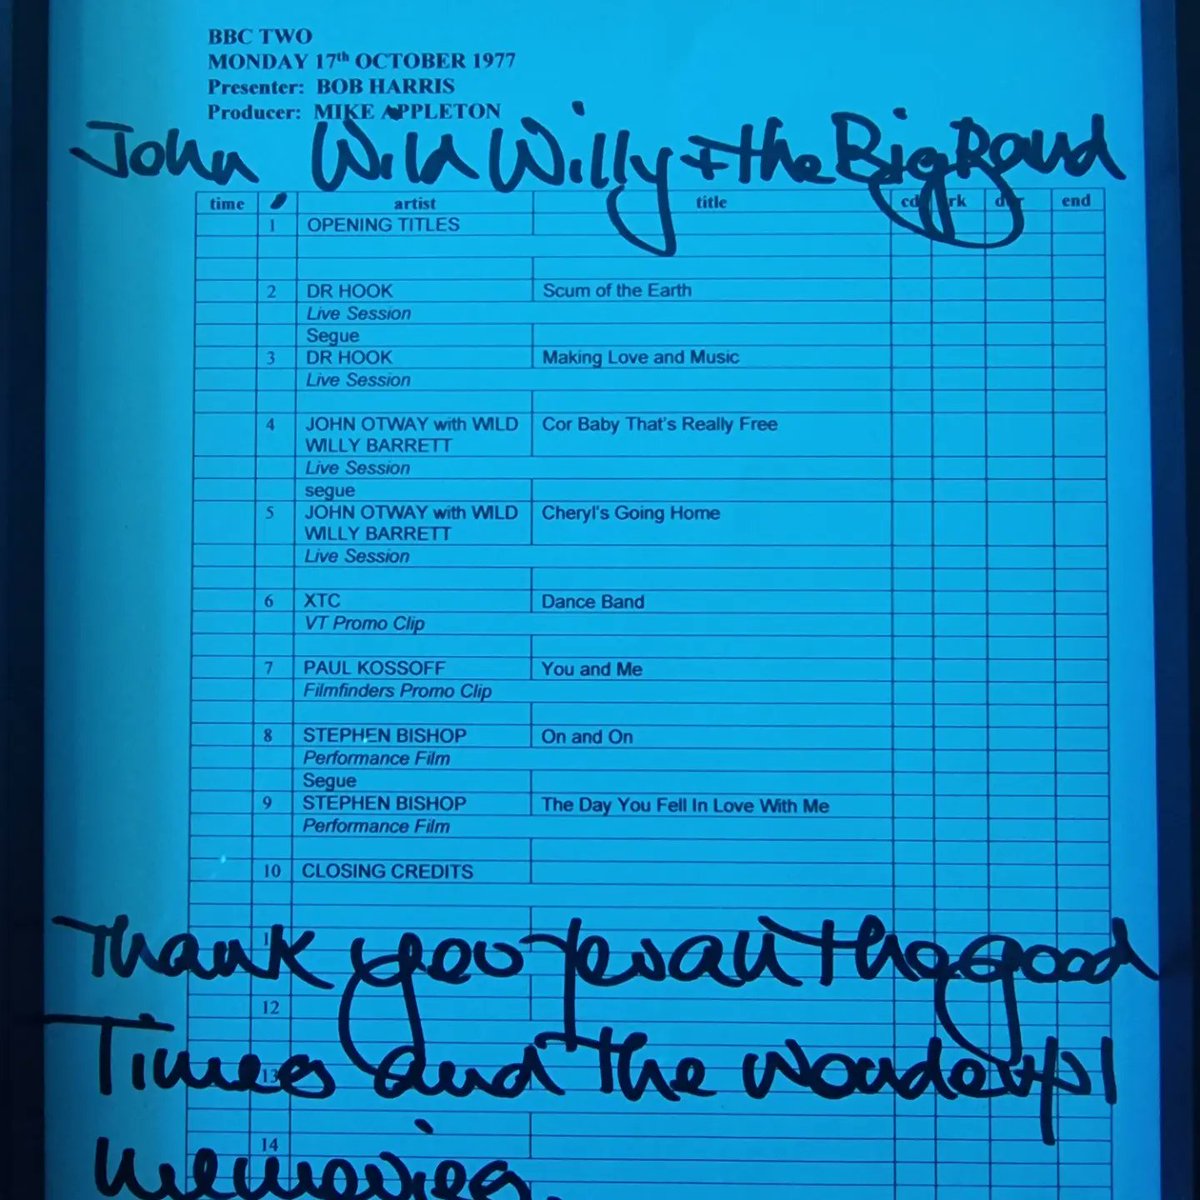 BBC TWO
MONDAY 17th OCTOBER 1977
Presenter: BOB HARRIS
Producer: MIKE APPLETON
John, Wild Willy + the Big Band
time artist title end
1 OPENING TITLES
2 DR HOOK Scum of the Earth
Live Session
Segue
3 DR HOOK Making Love and Music
Live Session
4 JOHN OTWAY with WILD Cor Baby That's Really Free
WILLY BARRETT
Live Session
segue
5 JOHN OTWAY with WILD Cheryl's Going Home
WILLY BARRETT
Live Session
6 XTC Dance Band
VT Promo Clip
7 PAUL KOSSOFF You and Me
Filmfinders Promo Clip
8 STEPHEN BISHOP On and On
Performance Film
Segue
9 STEPHEN BISHOP The Day You Fell In Love With Me
Performance Film
10 CLOSING CREDITS
Thank you for all the good
12
Times and the wonderful
13
14
memories.